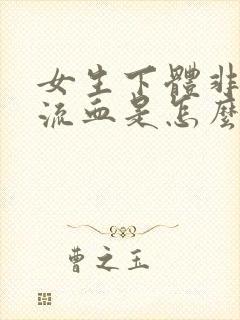 女生下體非
流血是怎麼
曹之玉